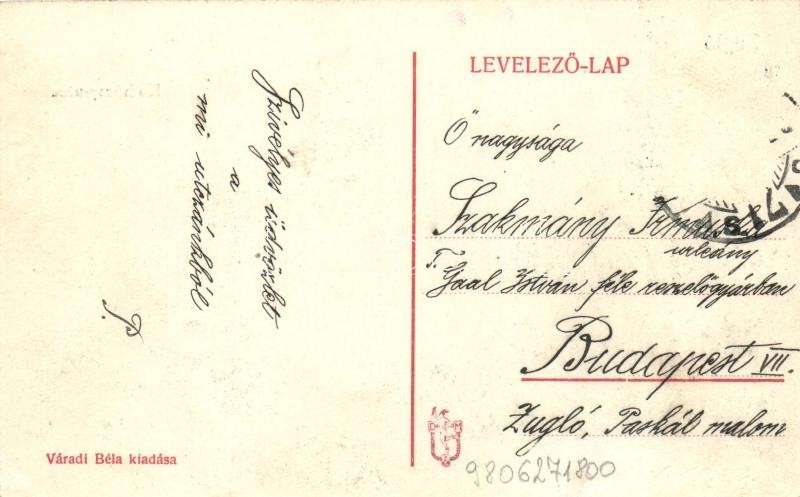 LEVELEZŐ-LAP
Szivélyes üdvözlet
a
mi utczánkból
P.
Ő nagysága
Szakmány Irmuska
urleány
T. Gaal István féle reszelőgyárban
Budapest VII.
Zugló, Paskál malom
Váradi Béla kiadása
D M
9806271800